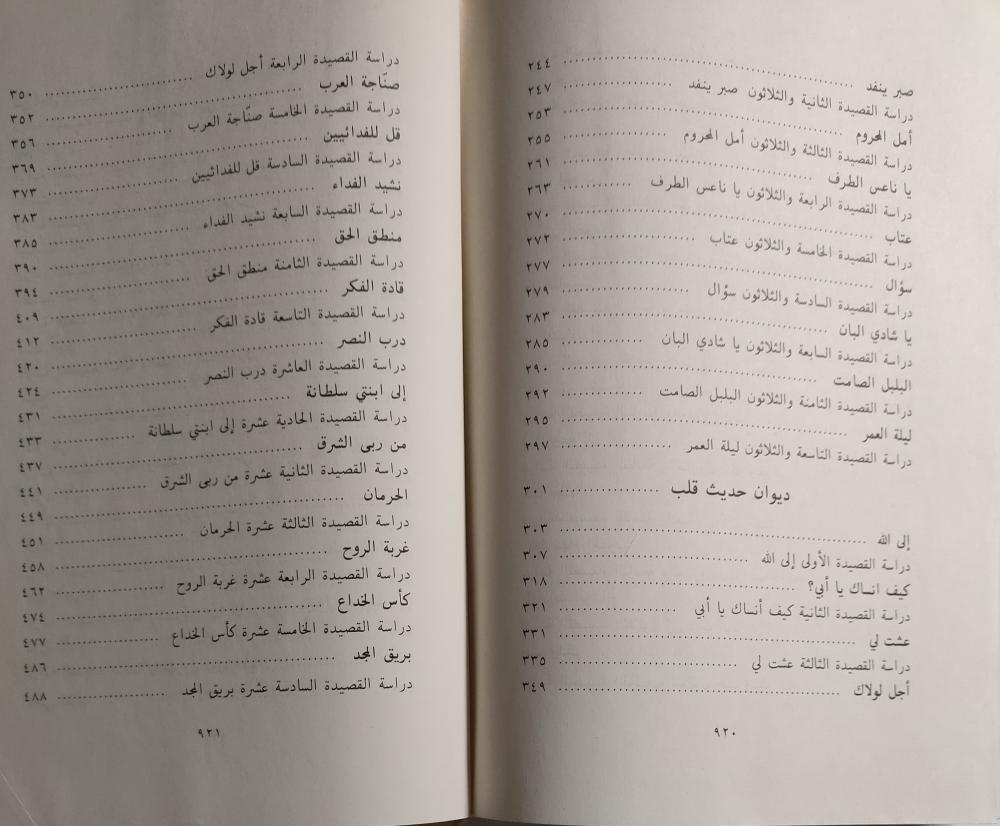 صبر ينفد ........ ٢٤٤
دراسة القصيدة الثانية والثلاثون صبر ينفد ........ ٢٤٧
أمل المحروم ........ ٢٥٣
دراسة القصيدة الثالثة والثلاثون أمل المحروم ........ ٢٥٥
يا ناعس الطرف ........ ٢٦١
دراسة القصيدة الرابعة والثلاثون يا ناعس الطرف ........ ٢٦٣
عتاب ........ ٢٧٠
دراسة القصيدة الخامسة والثلاثون عتاب ........ ٢٧٢
سؤال ........ ٢٧٧
دراسة القصيدة السادسة والثلاثون سؤال ........ ٢٧٩
يا شادي البان ........ ٢٨٣
دراسة القصيدة السابعة والثلاثون يا شادي البان ........ ٢٨٥
البلبل الصامت ........ ٢٩٠
دراسة القصيدة الثامنة والثلاثون البلبل الصامت ........ ٢٩٢
ليلة العمر ........ ٢٩٥
دراسة القصيدة التاسعة والثلاثون ليلة العمر ........ ٢٩٧
ديوان حديث قلب ........ ٣٠١
إلى الله ........ ٣٠٣
دراسة القصيدة الأولى إلى الله ........ ٣٠٧
كيف انساك يا أبي؟ ........ ٣١٨
دراسة القصيدة الثانية كيف أنساك يا أبي ........ ٣٢١
عشت لي ........ ٣٣١
دراسة القصيدة الثالثة عشت لي ........ ٣٣٥
أجل لولاك ........ ٣٤٩
٩٢٠
دراسة القصيدة الرابعة أجل لولاك ........ ٣٥٠
صنّاجة العرب ........ ٣٥٢
دراسة القصيدة الخامسة صنّاجة العرب ........ ٣٥٦
قل للفدائيين ........ ٣٦٩
دراسة القصيدة السادسة قل للفدائيين ........ ٣٧٣
نشيد الفداء ........ ٣٨٣
دراسة القصيدة السابعة نشيد الفداء ........ ٣٨٥
منطق الحق ........ ٣٩٠
دراسة القصيدة الثامنة منطق الحق ........ ٣٩٤
قادة الفكر ........ ٤٠٩
دراسة القصيدة التاسعة قادة الفكر ........ ٤١٢
درب النصر ........ ٤٢٠
دراسة القصيدة العاشرة درب النصر ........ ٤٢٤
إلى ابنتي سلطانة ........ ٤٣١
دراسة القصيدة الحادية عشرة إلى ابنتي سلطانة ........ ٤٣٣
من ربى الشرق ........ ٤٣٧
دراسة القصيدة الثانية عشرة من ربى الشرق ........ ٤٤١
الحرمان ........ ٤٤٩
دراسة القصيدة الثالثة عشرة الحرمان ........ ٤٥١
غربة الروح ........ ٤٥٨
دراسة القصيدة الرابعة عشرة غربة الروح ........ ٤٦٢
كأس الخداع ........ ٤٧٤
دراسة القصيدة الخامسة عشرة كأس الخداع ........ ٤٧٧
بريق المجد ........ ٤٨٦
دراسة القصيدة السادسة عشرة بريق المجد ........ ٤٨٨
٩٢١